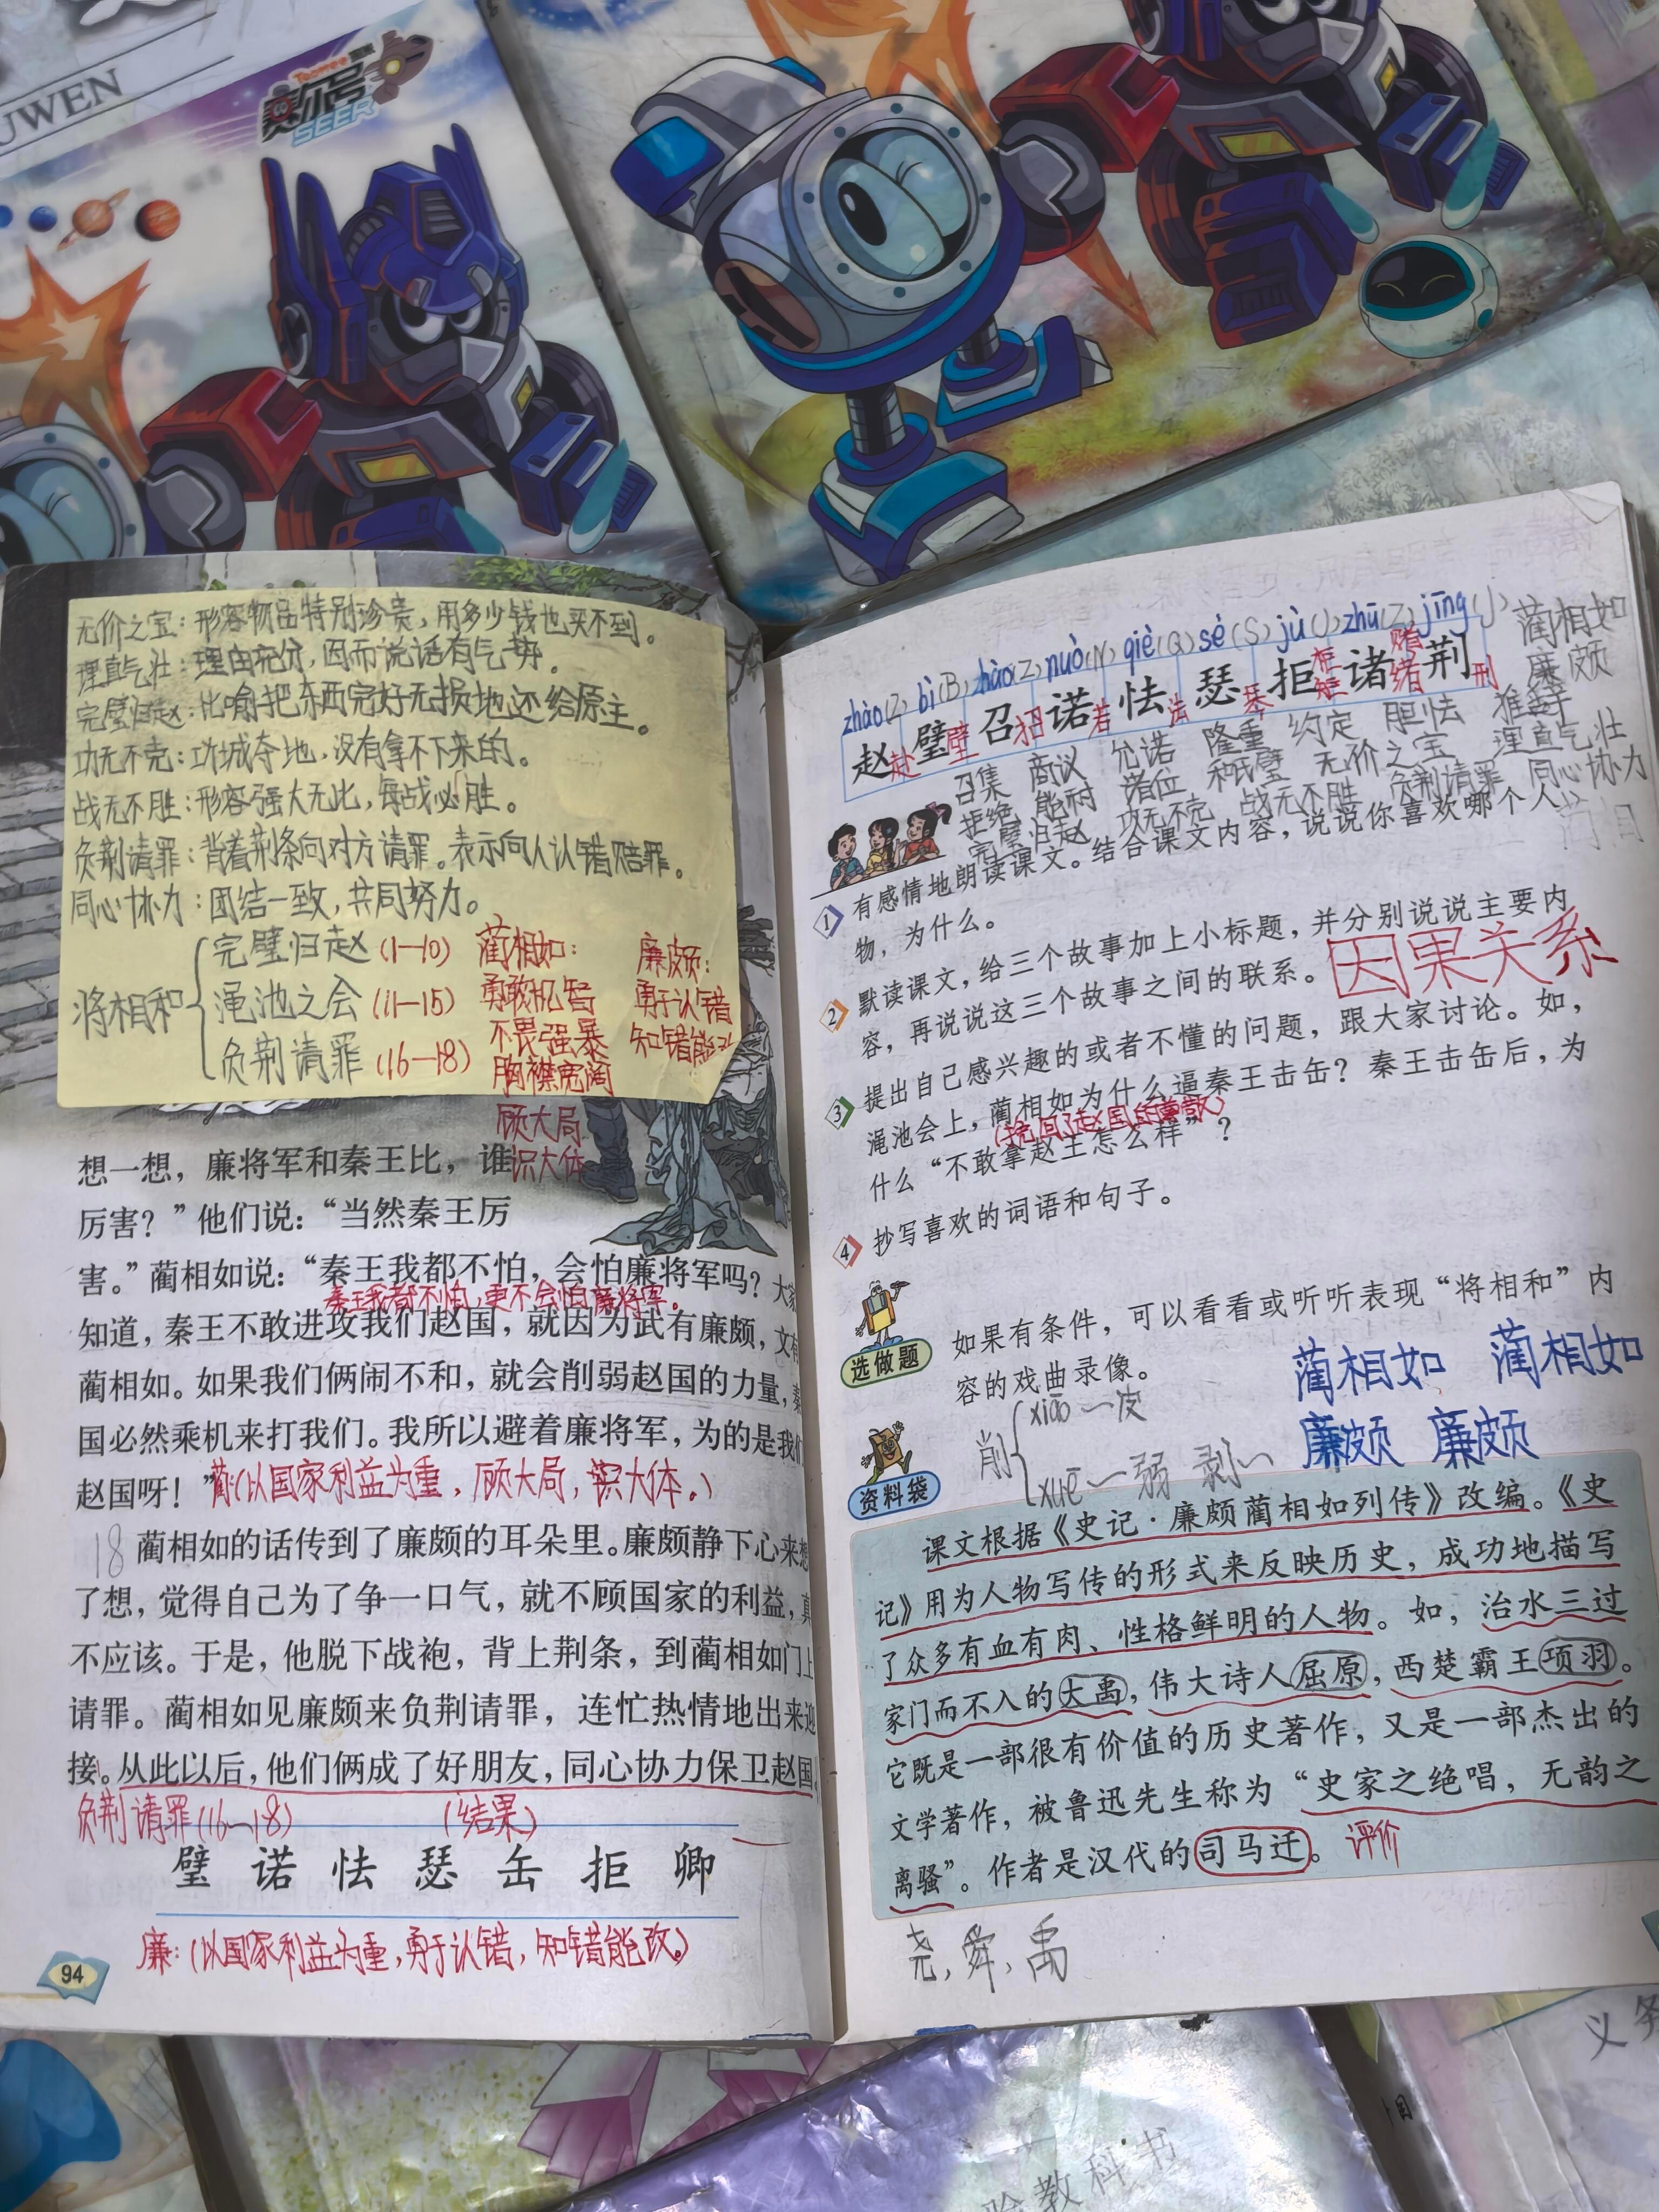 UWEN
Taomee
赛尔号
SEER
无价之宝：形容物品特别珍贵，用多少钱也买不到。
理直气壮：理由充分，因而说话有气势。
完璧归赵：比喻把东西完好无损地还给原主。
功无不克：功城夺地，没有拿不下来的。
战无不胜：形容强大无比，每战必胜。
负荆请罪：背着荆条向对方请罪。表示向人认错赔罪。
同心协力：团结一致，共同努力。
将相和
完璧归赵(1—10)
渑池之会(11—15)
负荆请罪(16—18)
蔺相如：
勇敢机智
不畏强暴
胸襟宽阔
顾大局
识大体
廉颇：
勇于认错
知错能改
想一想，廉将军和秦王比，谁
厉害？”他们说：“当然秦王厉
害。”蔺相如说：“秦王我都不怕，会怕廉将军吗？大家
秦王我都不怕，更不会怕廉将军。
知道，秦王不敢进攻我们赵国，就因为武有廉颇，文有
蔺相如。如果我们俩闹不和，就会削弱赵国的力量，秦
国必然乘机来打我们。我所以避着廉将军，为的是我们
赵国呀！”
蔺(以国家利益为重，顾大局，识大体。)
18
蔺相如的话传到了廉颇的耳朵里。廉颇静下心来想
了想，觉得自己为了争一口气，就不顾国家的利益，真
不应该。于是，他脱下战袍，背上荆条，到蔺相如门上
请罪。蔺相如见廉颇来负荆请罪，连忙热情地出来迎
接。从此以后，他们俩成了好朋友，同心协力保卫赵国。
负荆请罪(16—18) (结果)
璧 诺 怯 瑟 缶 拒 卿
廉：(以国家利益为重，勇于认错，知错能改。)
94
zhào(Z) bì(B) zhào(Z) nuò(N) qiè(Q) sè(S) jù(J) zhū(Z) jīng(J)
赵 璧 召 诺 怯 瑟 拒 诸 荆
赴 壁 招 若 法 琴 柜 矩 赌 绪 刑
蔺相如
廉颇
召集 商议 允诺 隆重 约定 胆怯
拒绝 能耐 诸位 和氏璧 无价之宝 理直气壮
完璧归赵 攻无不克 战无不胜 负荆请罪 同心协力
1 有感情地朗读课文。结合课文内容，说说你喜欢哪个人
物，为什么。
2 默读课文，给三个故事加上小标题，并分别说说主要内
容，再说说这三个故事之间的联系。
因果关系
3 提出自己感兴趣的或者不懂的问题，跟大家讨论。如，
渑池会上，蔺相如为什么逼秦王击缶？秦王击缶后，为
(挽回了赵国的尊严)
什么“不敢拿赵王怎么样”？
4 抄写喜欢的词语和句子。
选做题
如果有条件，可以看看或听听表现“将相和”内
容的戏曲录像。
蔺相如 蔺相如
廉颇 廉颇
削
xiāo 一皮
xuē 一弱 剥一
资料袋
课文根据《史记·廉颇蔺相如列传》改编。《史
记》用为人物写传的形式来反映历史，成功地描写
了众多有血有肉、性格鲜明的人物。如，治水三过
家门而不入的大禹，伟大诗人屈原，西楚霸王项羽。
它既是一部很有价值的历史著作，又是一部杰出的
文学著作，被鲁迅先生称为“史家之绝唱，无韵之
离骚”。作者是汉代的司马迁。
评价
尧，舜，禹
义务
验教科书